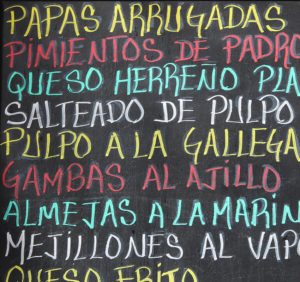 PAPAS ARRUGADAS
PIMIENTOS DE PADRO
QUESO HERREÑO PLA
SALTEADO DE PULPO
PULPO A LA GALLEGA
GAMBAS AL AJILLO
ALMEJAS A LA MARIN
MEJILLONES AL VAPO
QUESO FRITO